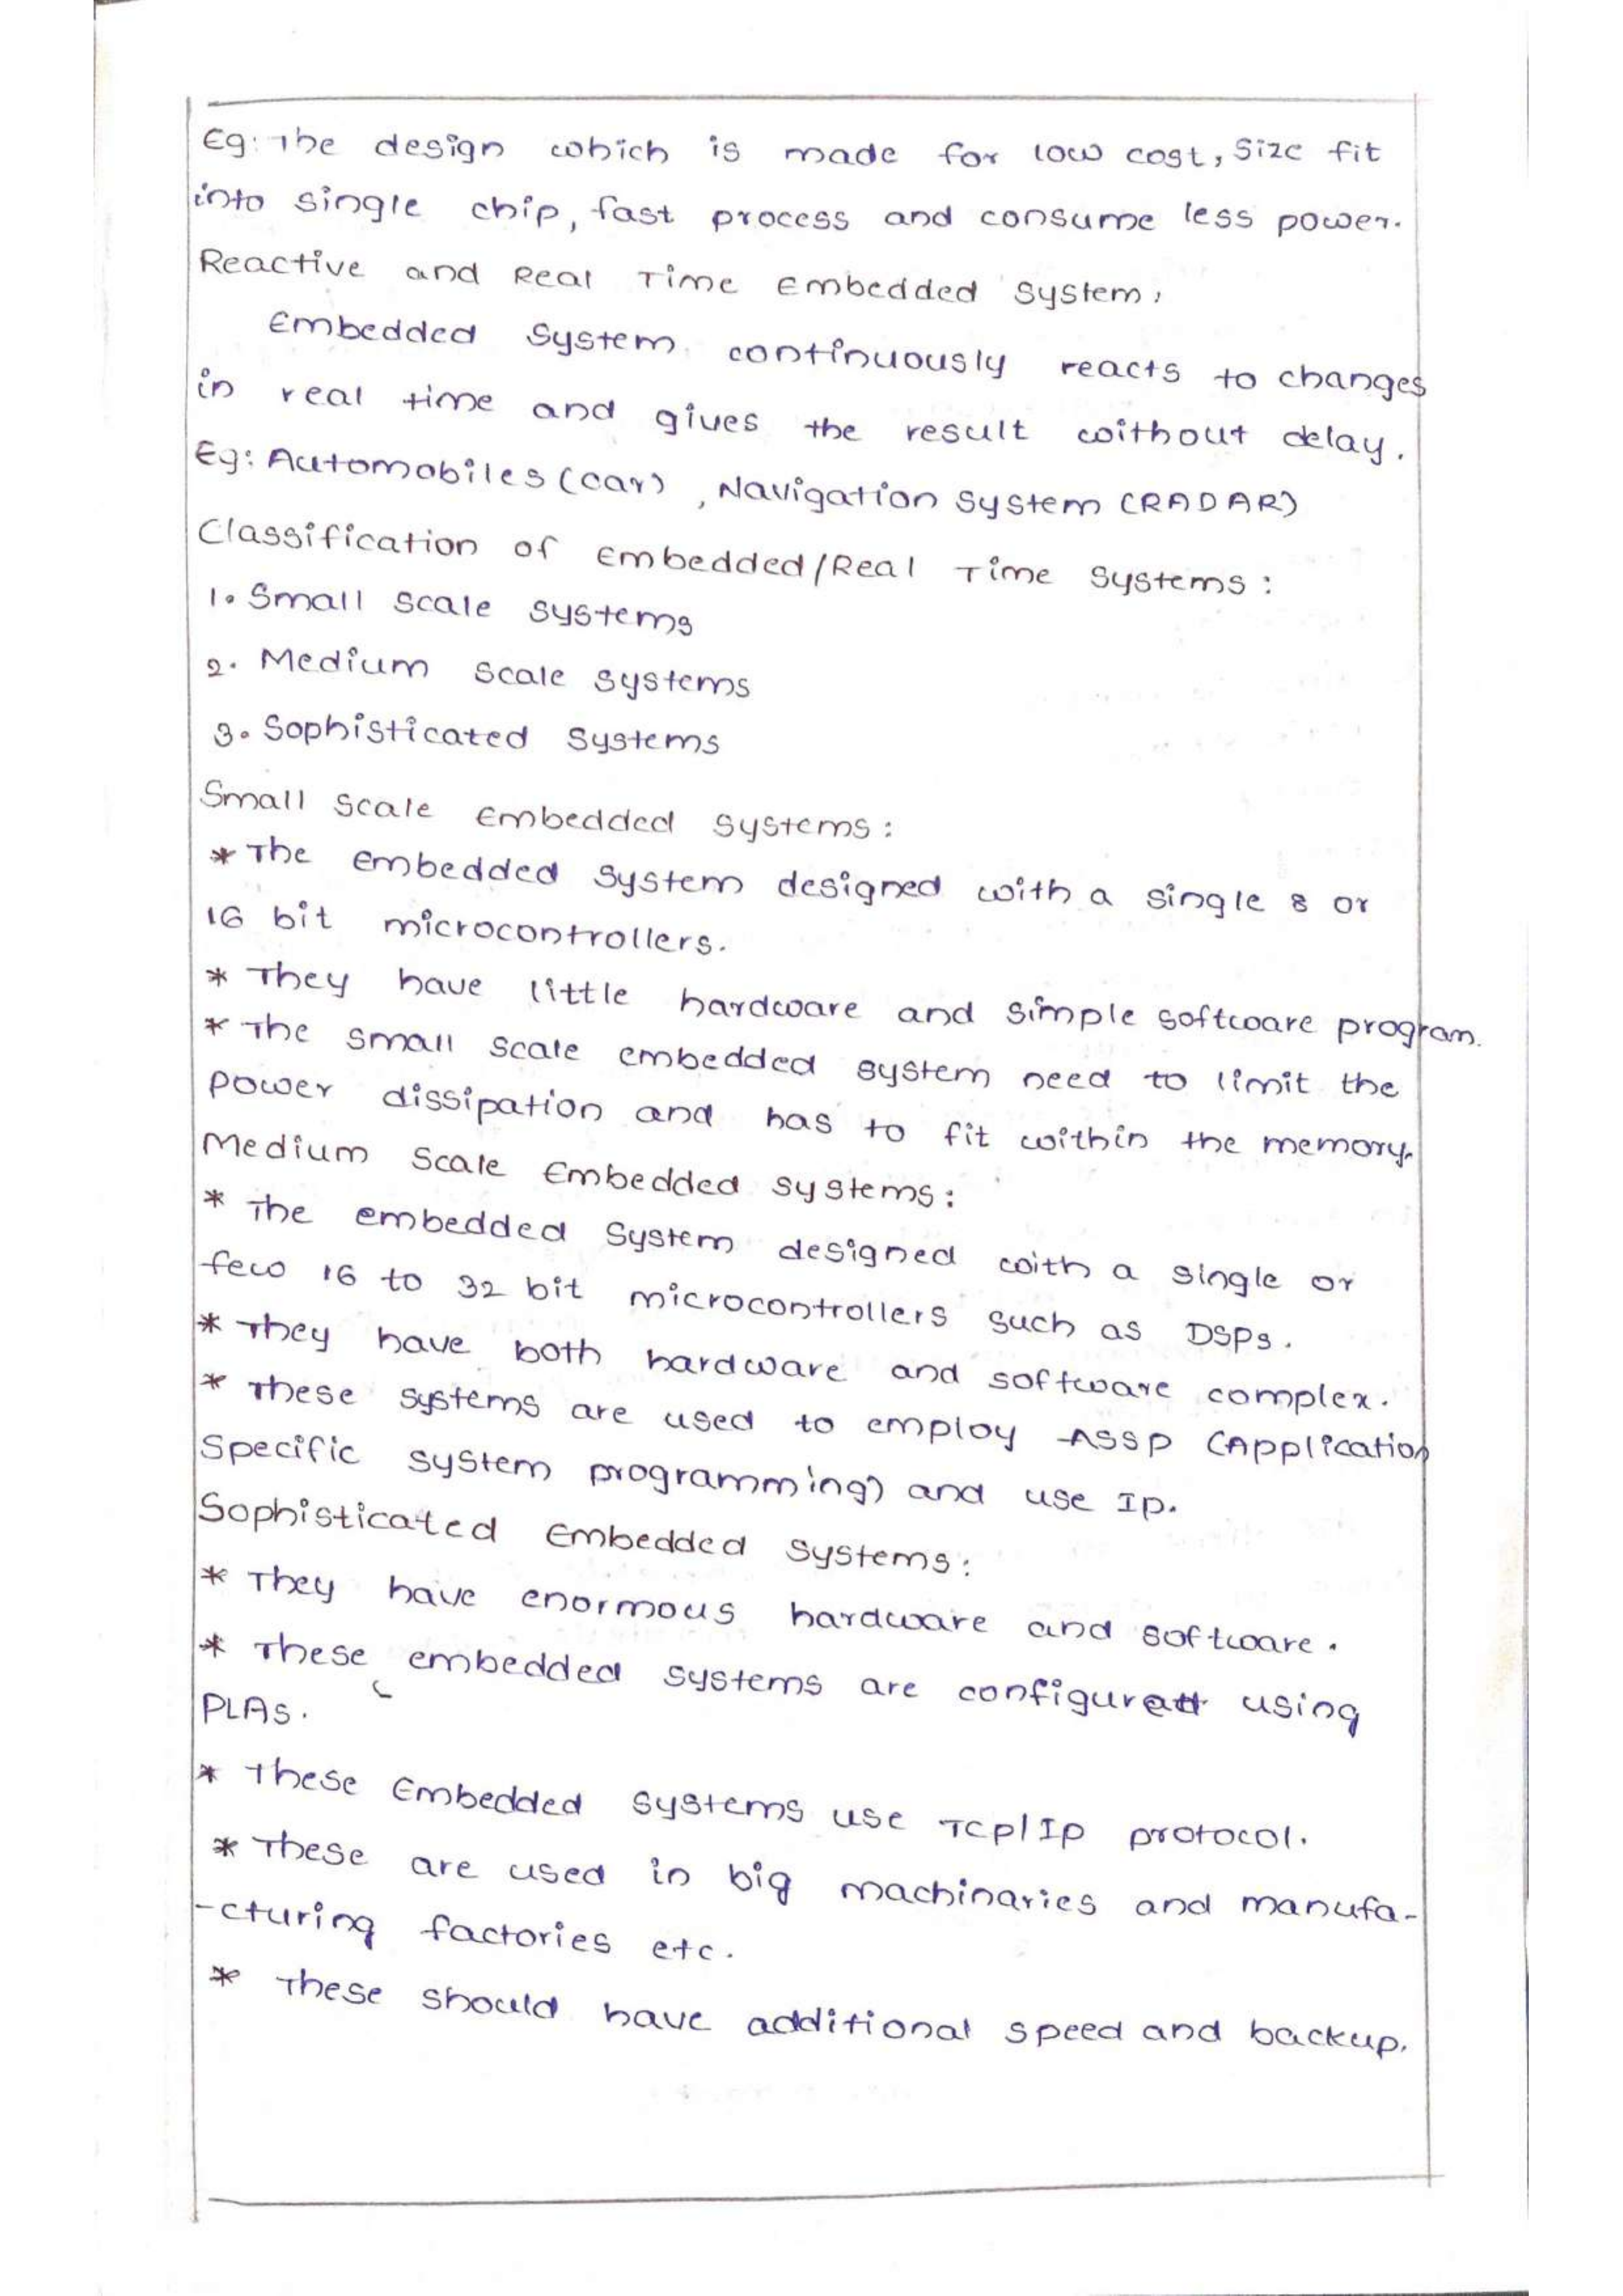 Eg: The design which is made for low cost, Size fit
into single chip, fast process and consume less power.
Reactive and Real Time Embedded System:
Embedded System continuously reacts to changes
in real time and gives the result without delay.
Eg: Automobiles (car), Navigation System (RADAR)
Classification of Embedded/Real Time Systems:
1. Small scale systems
2. Medium scale systems
3. Sophisticated systems
Small scale Embedded systems:
* The embedded system designed with a single 8 or
16 bit microcontrollers.
* They have little hardware and simple software program.
* The small scale embedded system need to limit the
power dissipation and has to fit within the memory.
Medium Scale Embedded systems:
* The embedded System designed with a single or
few 16 to 32 bit microcontrollers such as DSPs.
* They have both hardware and software complex.
* These systems are used to employ ASSP (Application
Specific system programming) and use Ip.
Sophisticated Embedded systems:
* They have enormous hardware and software.
* These embedded systems are configured using
PLAs.
* These Embedded systems use TCP/IP protocol.
* These are used in big machinaries and manufa-
-cturing factories etc.
* These should have additional speed and backup.